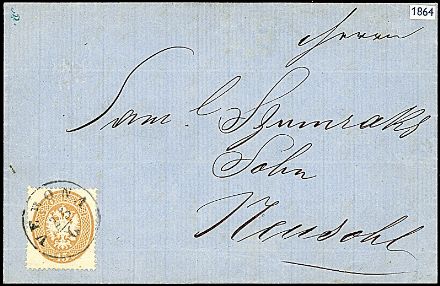 1864
Herrn
Sam. L. Szumraks
Sohn
Neusohl
VERONA
15